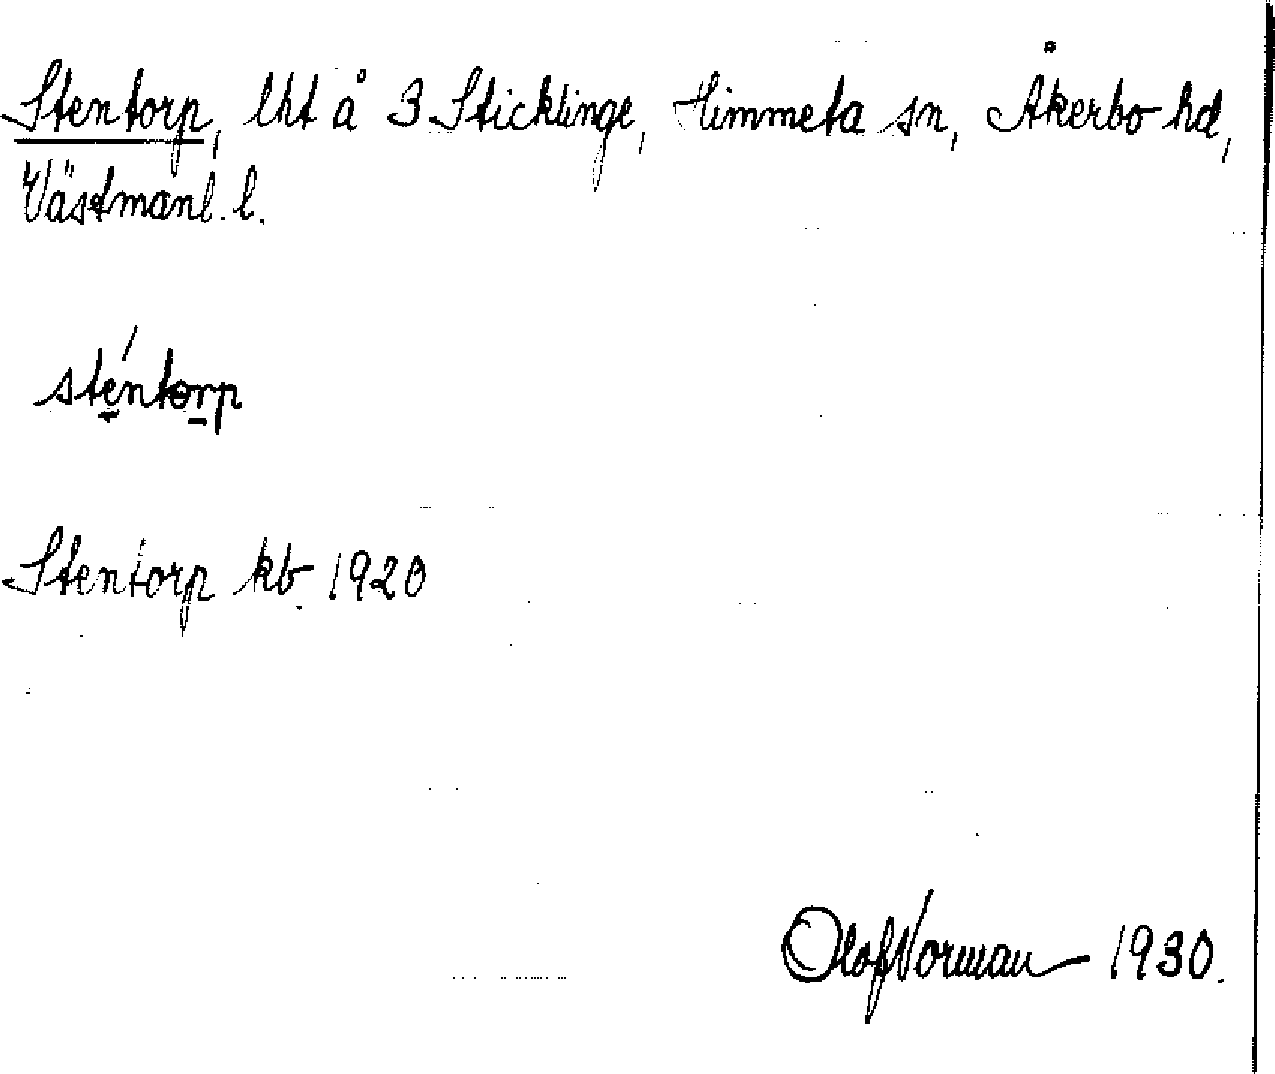 Stentorp, lht å 3 Sticklinge, Himmeta sn, Åkerbo hd,
Västmanl. l.
sténtorp
Stentorp kb 1920
Olof Norman 1930.